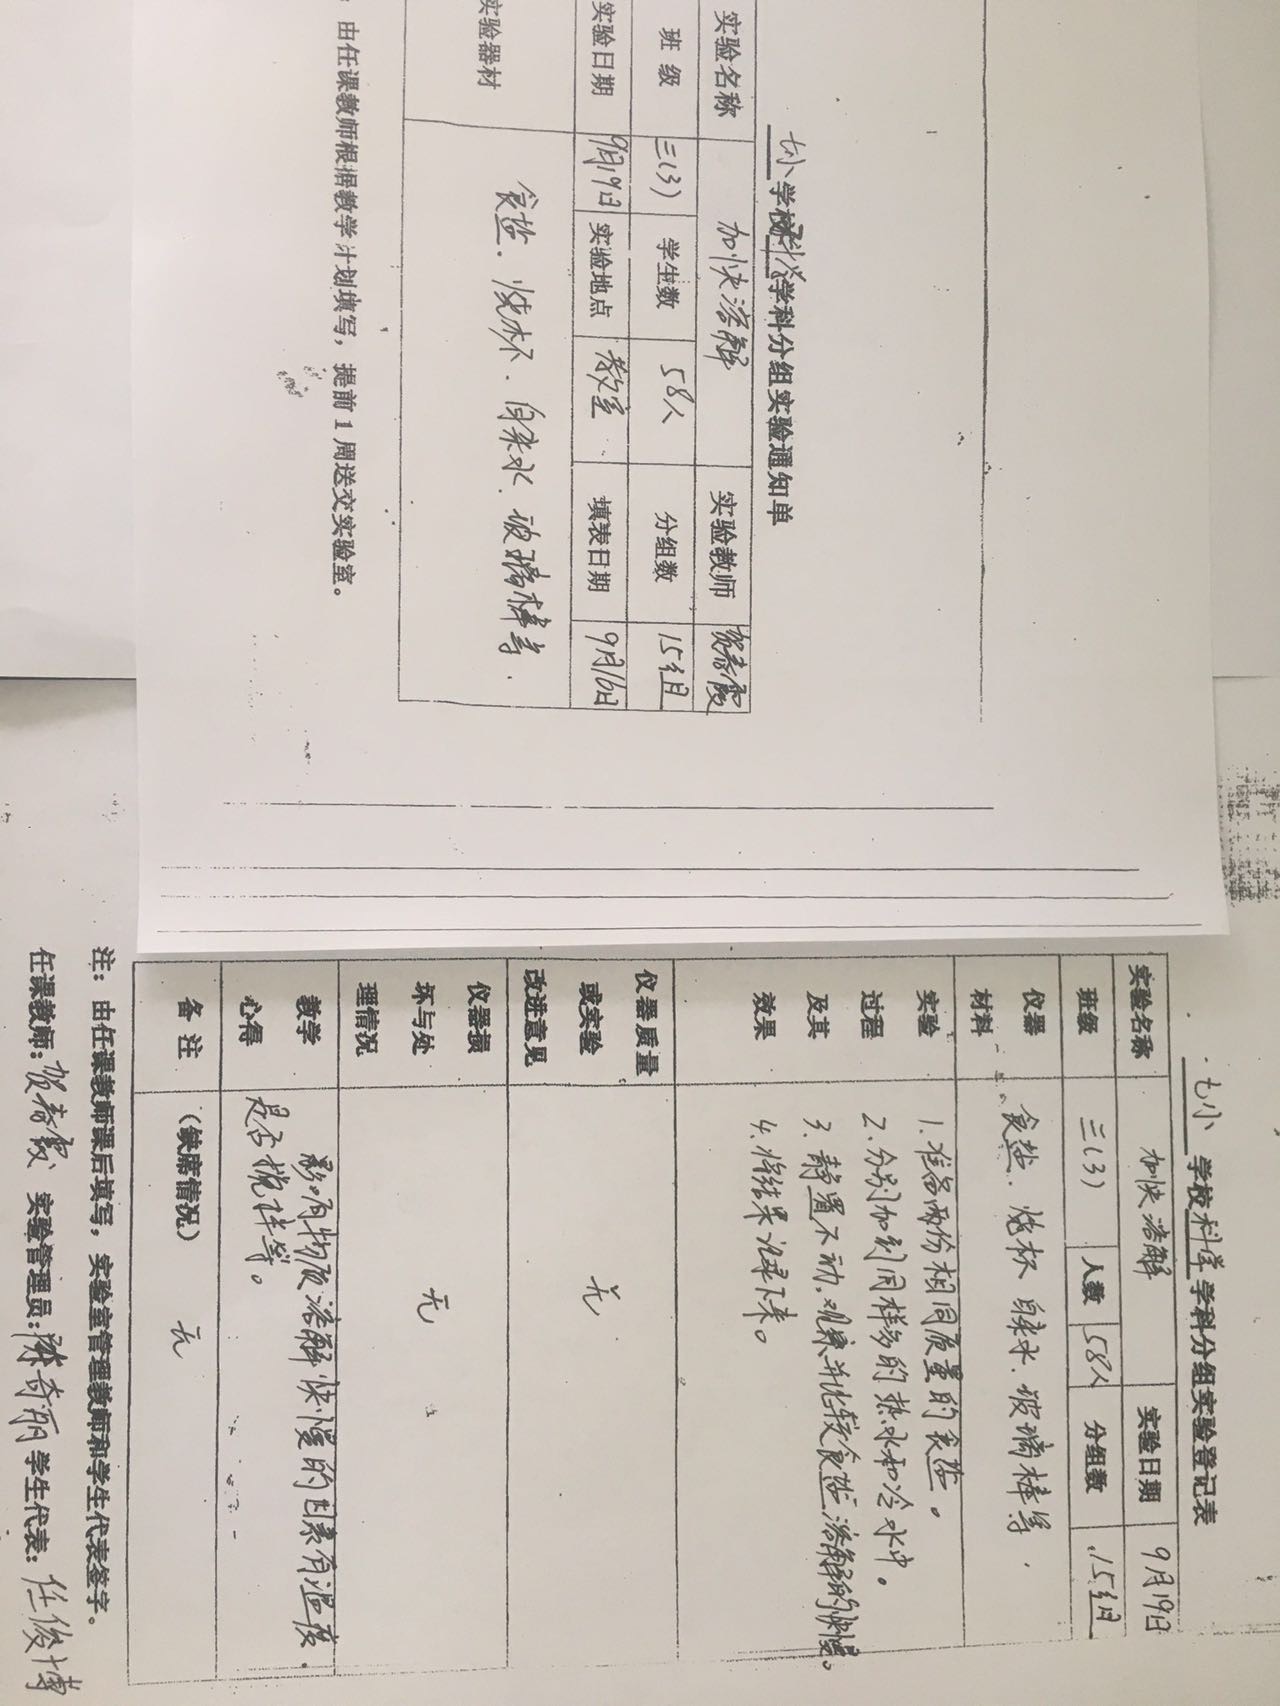 七小学校科学学科分组实验通知单
实验名称 加快溶解 实验教师 贺春霞
班 级 三(3) 学生数 58人 分组数 15组
实验日期 9月19日 实验地点 教室 填表日期 9月16日
实验器材 食盐、烧杯、自来水、玻璃棒等.
:由任课教师根据教学计划填写，提前1周送交实验室。
七小学校科学学科分组实验登记表
实验名称 加快溶解 实验日期 9月19日
班级 三(3) 人数 58人 分组数 15组
仪器
材料
食盐、烧杯 自来水、玻璃棒等.
实验
过程
及其
效果
1.准备两份相同质量的食盐。
2.分别加到同样多的热水和冷水中。
3.静置不动,观察并比较食盐溶解的快慢。
4.将结果记录下来。
仪器质量
或实验
改进意见
无
仪器损
坏与处
理情况
无
教学
心得
影响物质溶解快慢的因素有温度.
是否搅拌等。
备 注 (缺席情况) 无
注：由任课教师课后填写，实验室管理教师和学生代表签字。
任课教师:贺春霞 实验管理员:陈奇丽 学生代表:任俊博